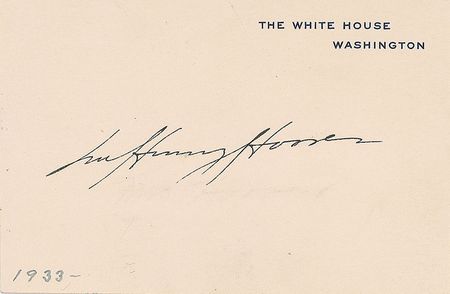 THE WHITE HOUSE
WASHINGTON
Lou Henry Hoover
1933-